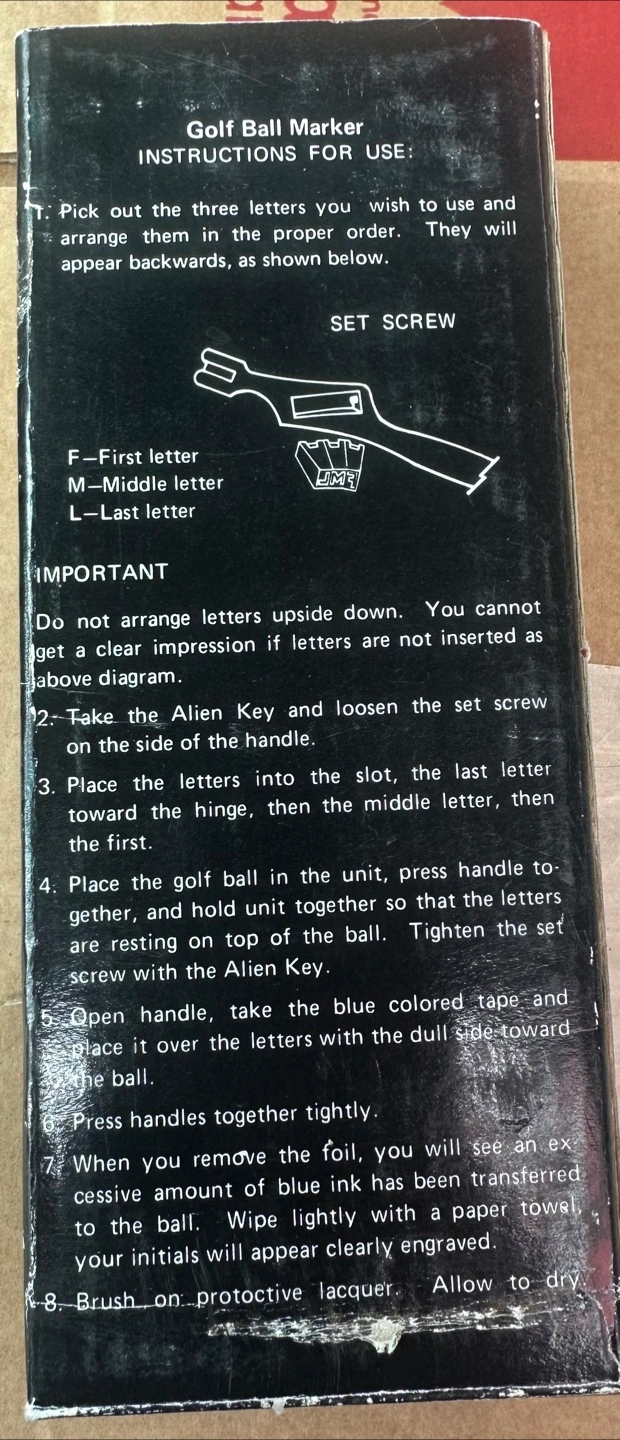 Golf Ball Marker
INSTRUCTIONS FOR USE:
1. Pick out the three letters you wish to use and
arrange them in the proper order. They will
appear backwards, as shown below.
SET SCREW
F—First letter
M—Middle letter
L—Last letter
IMPORTANT
Do not arrange letters upside down. You cannot
get a clear impression if letters are not inserted as
above diagram.
2. Take the Alien Key and loosen the set screw
on the side of the handle.
3. Place the letters into the slot, the last letter
toward the hinge, then the middle letter, then
the first.
4. Place the golf ball in the unit, press handle to-
gether, and hold unit together so that the letters
are resting on top of the ball. Tighten the set
screw with the Alien Key.
5. Open handle, take the blue colored tape and
place it over the letters with the dull side toward
the ball.
6. Press handles together tightly.
7. When you remove the foil, you will see an ex-
cessive amount of blue ink has been transferred
to the ball. Wipe lightly with a paper towel,
your initials will appear clearly engraved.
8. Brush on protoctive lacquer. Allow to dry.